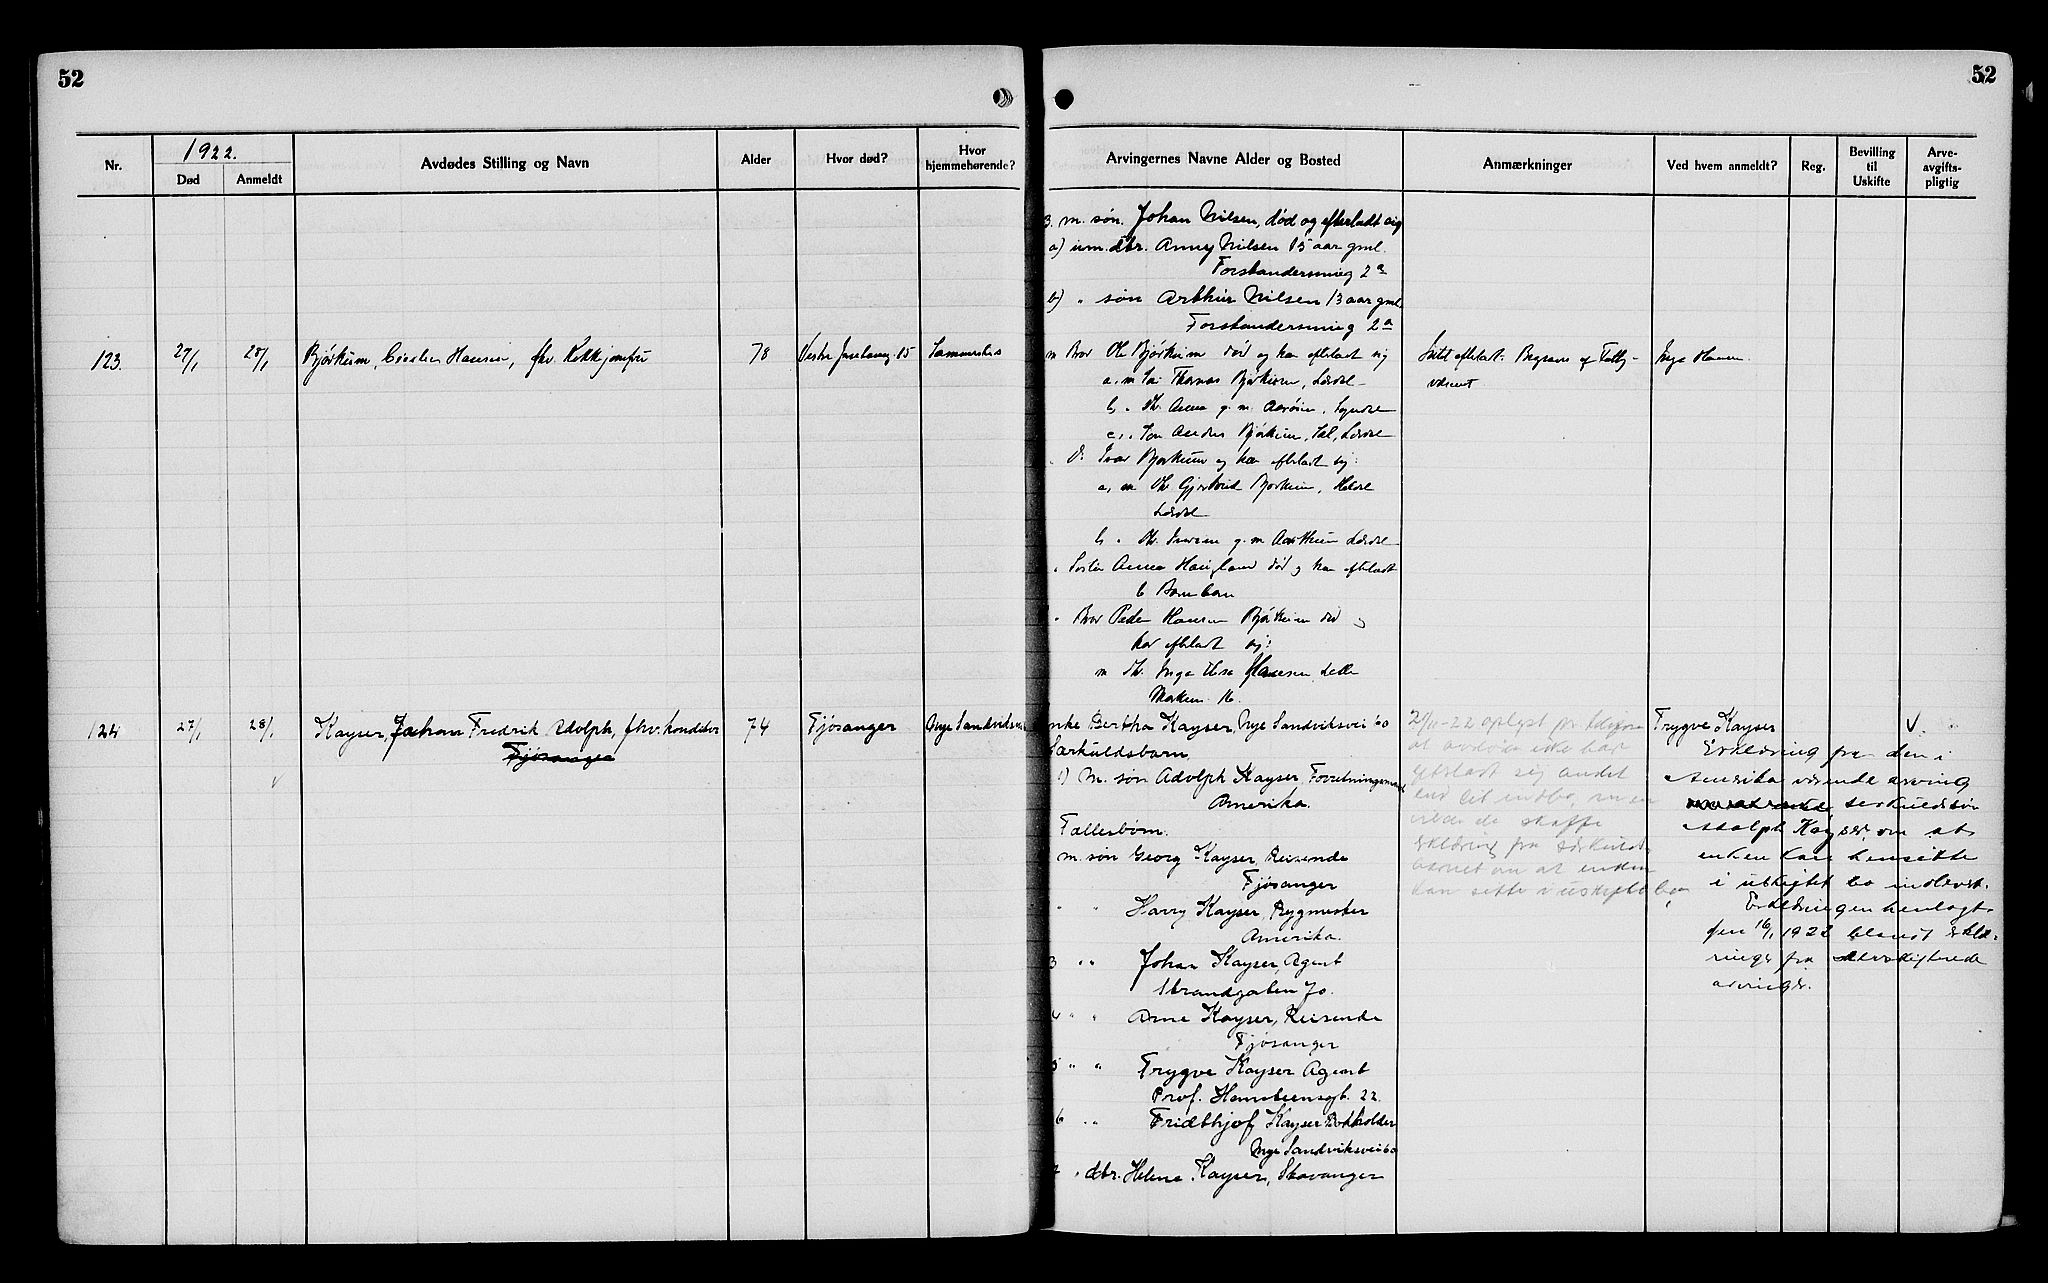 52
52
Nr.
1922.
Død
Anmeldt
Avdødes Stilling og Navn
Alder
Hvor død?
Hvor hjemmehørende?
Arvingernes Navne Alder og Bosted
Anmærkninger
Ved hvem anmeldt?
Reg.
Bevilling til Uskifte
Arve-avgifts-pligtig
3. m. søn. Johan Nilsen, død og efterladt sig
a) um. dtr. Anny Nilsen 15 aar gml.
Forstandersmug 2a
b) " søn Arthur Nilsen 13 aar gml.
Forstandersmug 2a
123. 27/1 28/1 Bjørkum, Hansen, fhv. Kokkejomfru 78 15 Sammesteds
m Bror Ole Bjørkum død og har efterladt sig
a. m Søn Thomas Bjørkum, Lærdal
b. " dtr. Anna g. m. Sogndal
c. " Søn Anders Bjørkum, Lærdal
Ivar Bjørkum og har efterladt sig:
a. m dtr. Gjertrud Bjørkum,
Lærdal
b. " dtr. g. m Lærdal
" Søster Anna Haugland død og har efterladt
6 Barnebarn
" Bror Peder Hansen Bjørkum død og
har efterladt sig:
m dtr. Inga Elise Hansen, Lille
Marken 16.
Intet efterladt. Begravet af Fattig-
væsenet
Inga Hansen
124 27/1 28/1 Kayser, Johan Fredrik Adolph, fhv. konditor 74 Fjøsanger Nye Sandviksvei
Fjøsanger
nke Bertha Kayser, Nye Sandviksvei 60
Særkuldsbarn,
1) M. søn Adolph Kayser, Forretningsmand
Amerika.
Fællesbørn.
m. søn Georg Kayser, Reisende
Fjøsanger
" " Harry Kayser, Bygmester
Amerika.
3 " " Johan Kayser, Agent
Strandgaten 70.
4 " " Arne Kayser, Reisende
Fjøsanger
5 " " Trygve Kayser Agent
Prof. Hansteensgt. 22.
6 " " Fridthjof Kayser Bokholder
Nye Sandviksvei 60
7 " dtr. Helene Kayser, Stavanger
-22 oplyst pr.
at avdøde ikke har
efterladt sig andet
end lit indbo,
vilde de skaffe
erklæring fra særkulds
barnet om at enken
kan sitte i uskiftet bo
Trygve Kayser V.
Erklæring fra den i
Amerika værende arving
særkuldsbarn
Adolph Kayser, om at
enken kan hensitte
i uskiftet bo indlevert.
Erklæringen henlagt
den 16/ 1922 blandt erklæ-
ringer fra
arvinger.